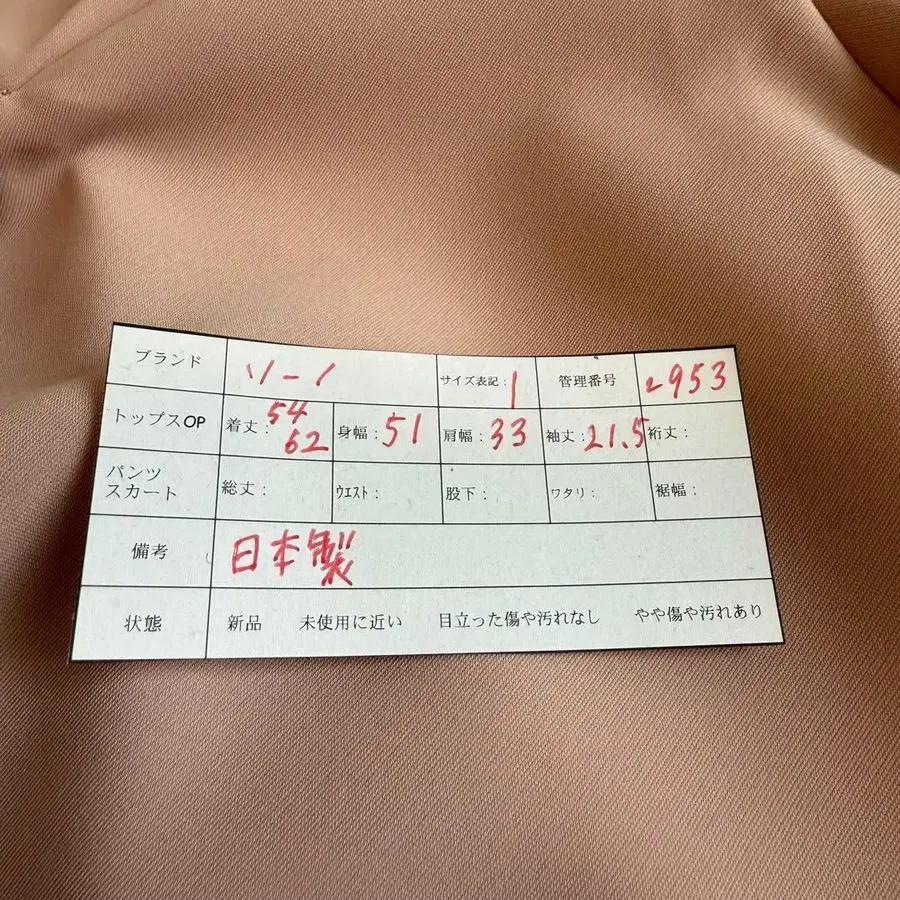 ブランド ソーノ サイズ表記： 1 管理番号 2953
トップスOP 着丈：54 62 身幅：51 肩幅：33 袖丈：21.5 裄丈：
パンツ スカート 総丈： ウエスト： 股下： ワタリ： 裾幅：
備考 日本製
状態 新品 未使用に近い 目立った傷や汚れなし やや傷や汚れあり